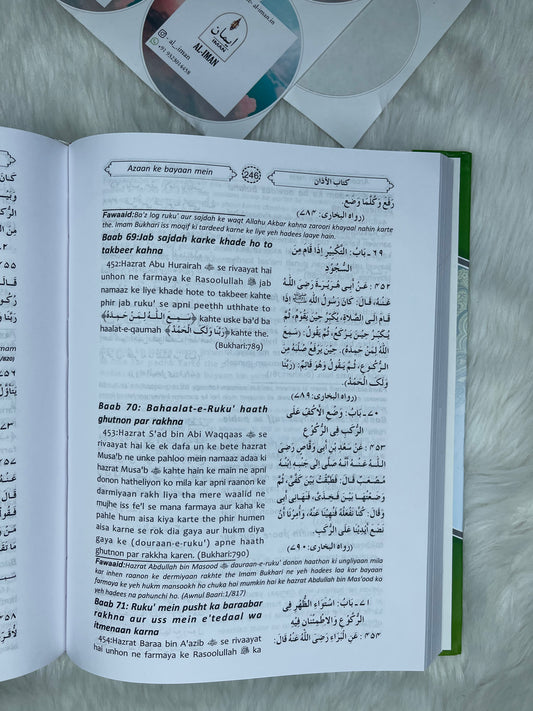 ایمان
AL-IMAN
al._.iman
Azaan ke bayaan mein
246
كتاب الأذان
Fawaaid:Ba'z log ruku' aur sajdah ke waqt Allahu Akbar kahna zaroori khayaal nahin karte
the. Imam Bukhari iss maqif ki tardeed karne ke liye yeh hadees laaye hain.
Baab 69:Jab sajdah karke khade ho to
takbeer kahna
452:Hazrat Abu Hurairah ﷺ se rivaayat hai
unhon ne farmaya ke Rasoolullah ﷺ jab
namaaz ke liye khade hote to takbeer kahte
phir jab ruku' se apni peethh uthhate to
﴿سَمِعَ اللّٰهُ لِمَنْ حَمِدَهٗ﴾ kahte uske ba'd ba
haalat-e-qaumah ﴿رَبَّنَا وَلَکَ الْحَمْدُ﴾ kahte the.
(Bukhari:789)
Baab 70: Bahaalat-e-Ruku' haath
ghutnon par rakhna
453:Hazrat S'ad bin Abi Waqqaas se
rivaayat hai ke ek dafa un ke bete hazrat
Musa'b ne unke pahloo mein namaaz adaa ki
hazrat Musa'b kahte hain ke main ne apni
donon hatheliyon ko mila kar apni raanon ke
darmiyaan rakh liya tha mere waalid ne
mujhe iss fe'l se mana farmaya aur kaha ke
pahle hum aisa kiya karte the phir humen
aisa karne se rok dia gaya aur hukm diya
gaya ke (douraan-e-ruku') apne haath
ghutnon par rakkha karen. (Bukhari:790)
Fawaaid:Hazrat Abdullah bin Masood douraan-e-ruku' donon haathon ki ungliyaan mila
kar inhen raanon ke dermiyaan rakhte the Imam Bukhari ne yeh hadees laa kar bayaan
farmaya ke yeh hukm mansookh ho chuka hai mumkin hai ke hazrat Abdullah bin Mas'ood ko
yeh hadees na pahunchi ho. (Awnul Baari:1/817)
Baab 71: Ruku' mein pusht ka baraabar
rakhna aur uss mein e'tedaal wa
itmenaan karna
454:Hazrat Baraa bin A'azib se rivaayat
hai unhon ne farmaya ke Rasoolullah ﷺ ka
رَفَعَ وَكُلَّمَا وَضَعَ.
(رواه البخاری: ۷۸۴)
۶۹ ـ بَابُ: التَّكْبِيرِ إِذَا قَامَ مِنَ
السُّجُوْدِ
۴۵۲ : عَنْ أَبِي هُرَيْرَةَ رَضِيَ اللّٰهُ
عَنْهُ، قَالَ: كَانَ رَسُولُ اللّٰهِ ﷺ إِذَا
قَامَ إِلَى الصَّلَاةِ، يُكَبِّرُ حِينَ يَقُوْمُ، ثُمَّ
يُكَبِّرُ حِيْنَ يَرْكَعُ، ثُمَّ يَقُولُ: (سَمِعَ
اللّٰهُ لِمَنْ حَمِدَهُ). حِينَ يَرْفَعُ صُلْبَهُ مِنَ
الرُّكُوعِ، ثُمَّ يَقُولُ وَهُوَ قَائِمٌ: (رَبَّنَا
وَلَكَ الْحَمْدُ).
(رواه البخاری: ۷۸۹)
۷۰ ـ بَابُ: وَضْعِ الْأَكُفِّ عَلَى
الرُّكَبِ فِي الرُّكُوْعِ
۴۵۳ : عَنْ سَعْدِ بْنِ أَبِي وَقَّاصٍ رَضِيَ
اللّٰهُ عَنْهُ أَنَّهُ صَلَّى إِلَى جَنْبِهِ ابْنُهُ
مُصْعَبٌ قَالَ: فَطَبَّقْتُ بَيْنَ كَفَّيَّ، ثُمَّ
وَضَعْتُهَا بَيْنَ فَخِذَيَّ، فَنَهَانِي أَبِي
وَقَالَ: كُنَّا نَفْعَلُهُ فَنُهِينَا عَنْهُ، وَأُمِرْنَا أَنْ
نَضَعَ أَيْدِيَنَا عَلَى الرُّكَبِ.
(رواه البخاری: ۷۹۰)
۷۱ ـ بَابُ: اسْتِوَاءِ الظَّهْرِ فِي
الرُّكُوعِ وَالِاطْمِئْنَانِ فِيهِ
۴۵۴ : عَنِ الْبَرَاءِ رَضِيَ اللّٰهُ عَنْهُ قَالَ: